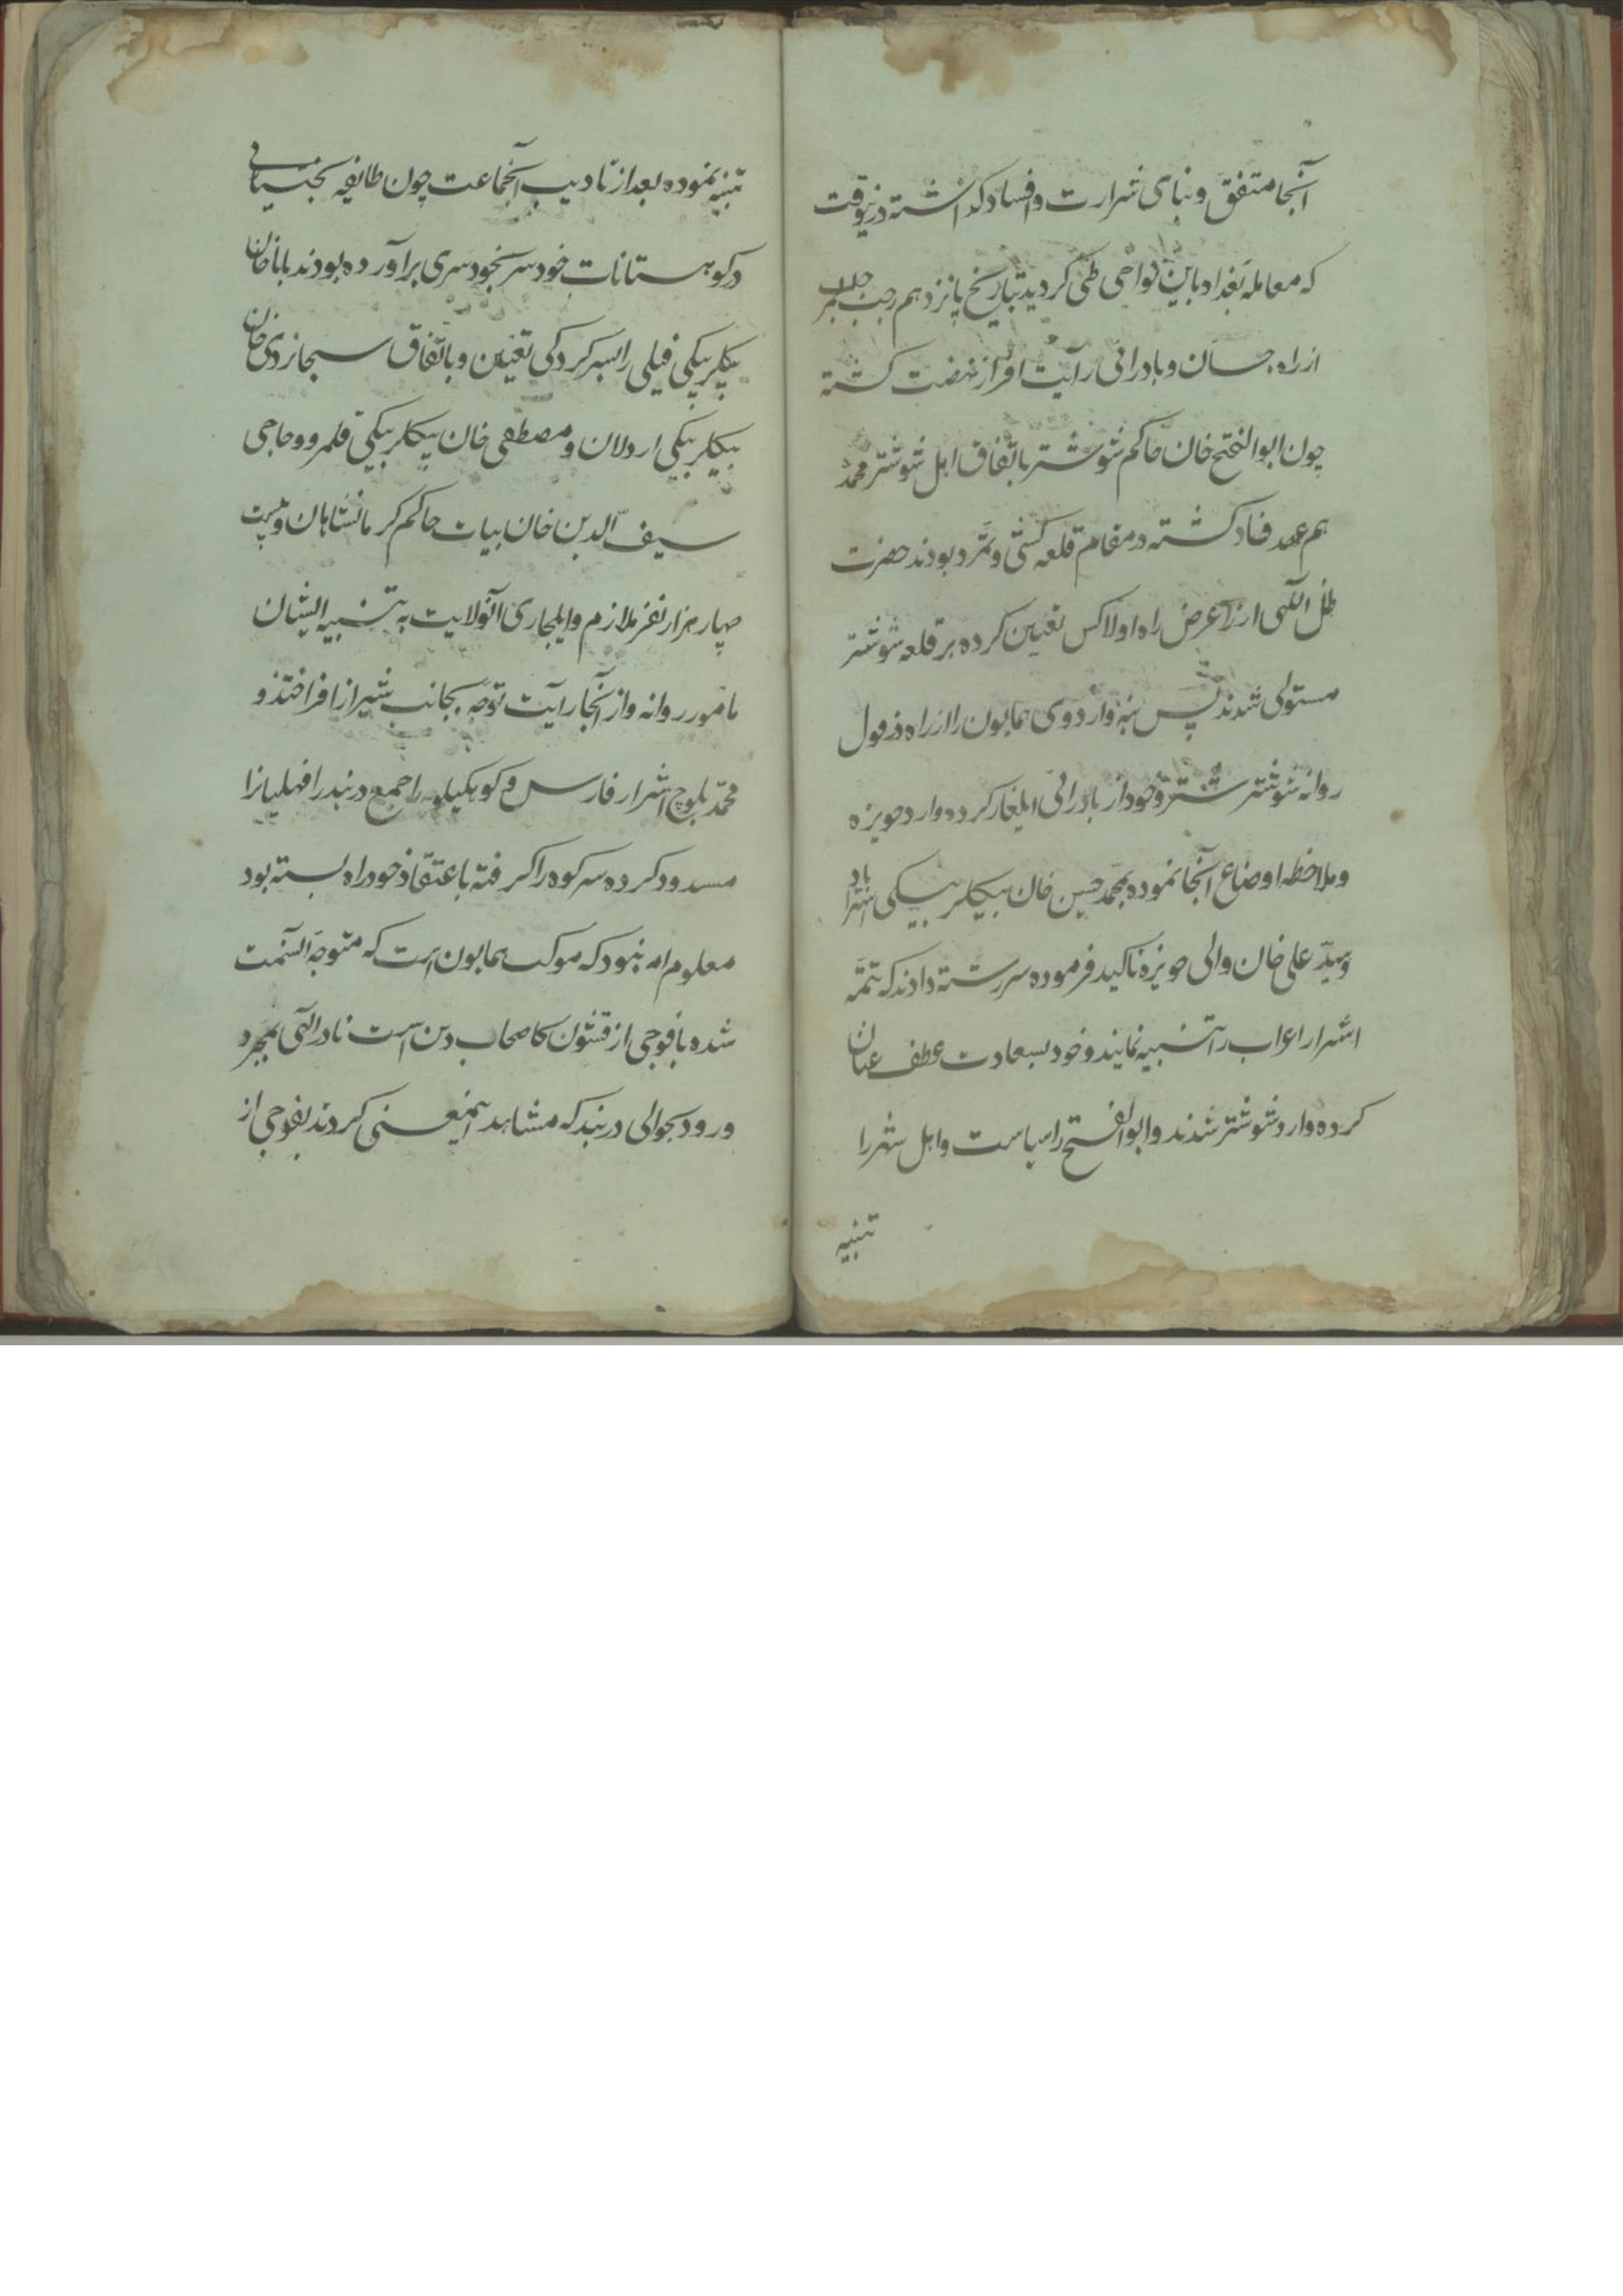 آنجا متفق و بنای شرارت و افساد گذاشته درینوقت
که معامله بغداد باین نواحی طی گردید بتاریخ پانزدهم رجب
از راه جسان و بادرائی رایت افراز نهضت گشته
چون ابوالفتح خان حاکم شوشتر باتفاق اهل شوشتر محمد
هم عهد فساد گشته در مقام قلعه کشی و تمرد بودند حضرت
ظل اللهی از راه اولا کس تعیین کرده بر قلعه شوشتر
مستولی شدند پس بنه و اردوی همایون را از راه دزفول
روانه شوشتر و خود از بادرائی ایلغار کرده وارد حویزه
و ملاحظه اوضاع آنجا نموده بمحمد حسین خان بیکلربیکی استراباد
و سید علی خان والی حویزه تاکید فرموده سررشته دادند که تتمه
اشرار اعراب را تنبیه نمایند و خود بسعادت عطف عنان
کرده وارد شوشتر شدند و ابوالفتح را سیاست و اهل شهر را
تنبیه
تنبیه نموده بعد از تادیب آنجماعت چون طایفه بختیاری
در کوهستانات خود سر بخودسری برآورده بودند باباخان
بیکلربیکی فیلی را بسرکردکی تعیین و باتفاق سبحانویردی خان
بیکلربیکی اردلان و مصطفی خان بیکلربیکی قلمرو و حاجی
سیف الدین خان بیات حاکم کرمانشاهان و بیست
چهار هزار نفر ملازم و ایلجاری آنولایت به تنبیه ایشان
مامور روانه و از آنجا رایت توجه بجانب شیراز افراختند و
محمد بلوچ اشرار فارس و کوهکیلویه را جمع دربند را فهلیانرا
مسدود کرده سر کوه را گرفته باعتقاد خود راه بسته بود
معلوم او نبود که موکب همایون است که متوجه آنسمت
شده با فوجی از قشون کاصحاب دین است نادر الهی بمجرد
ورود بحوالی دربند که مشاهد اینمعنی کردند بفوجی از